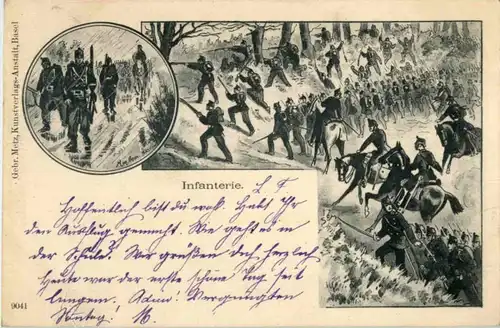 Gebr. Metz, Kunstverlags-Anstalt, Basel
Infanterie. L. F.
Hoffentlich bist du wohl. Habt Ihr
den Ausflug gemacht. Wie geht es in
der Schule? Wir grüßen dich herzlich
Heute war der erste schöne Tag seit
langem. Vergnügten
Sonntag!
9041